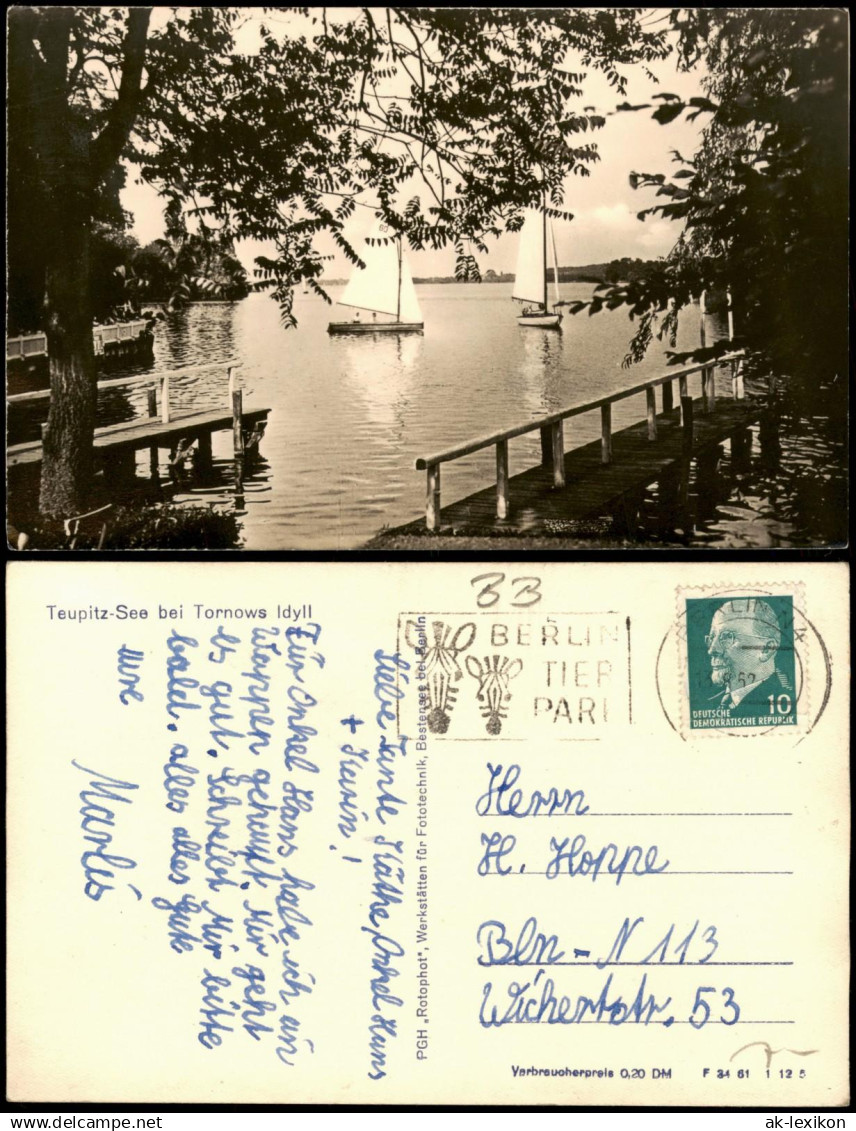 Teupitz-See bei Tornows Idyll
Liebe Tante Käthe, Onkel Hans
+ Kevin!
Für Onkel Hans habe ich ein
Wappen gehaupt. Mir geht
es gut. Schreibt Mir bitte
bald. alles alles Gute
eure
Marlis
PGH „Rotophot", Werkstätten für Fototechnik, Bestensee bei Berlin
BB
BERLIN
TIER
PARK
BERLIN
DEUTSCHE
DEMOKRATISCHE REPUBLIK
10
Herrn
H. Hoppe
Bln - N 113
Wichertstr. 53
Verbraucherpreis 0,20 DM F 34 61 1 12 5
ak-lexikon
ak-lexikon.com